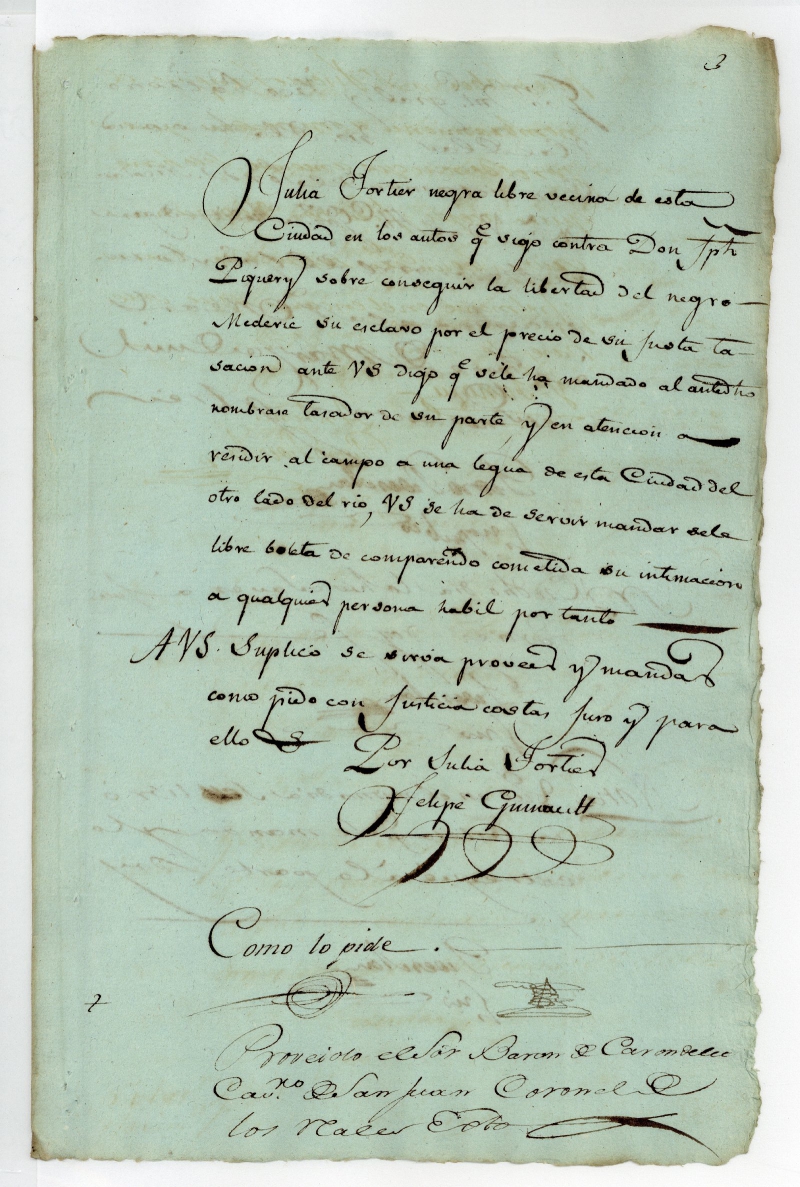 3
Julia Fortier negra libre vecina de esta
Ciudad en los autos qe sigo contra Don Jph
Piquery sobre conseguir la libertad del negro
Mederic su esclavo por el precio de su justa ta-
sacion ante VS digo qe sele ha mandado al antedho
nombrase tasador de su parte, y en atencion a
residir al campo a una legua de esta Ciudad del
otro lado del rio, VS se ha de servir mandar sele
libre boleta de comparendo cometida su intimacion
a qualquier persona habil por tanto
A VS. Suplico se sirva proveer y mandar
como pido con Justicia costas juro y para
ello &
Por Julia Fortier
Felipe Guinault
Como lo pide.
Proveido el Sōr Baron de Carondelet
Cavro. de San Juan Coronel de
los Rales Exto